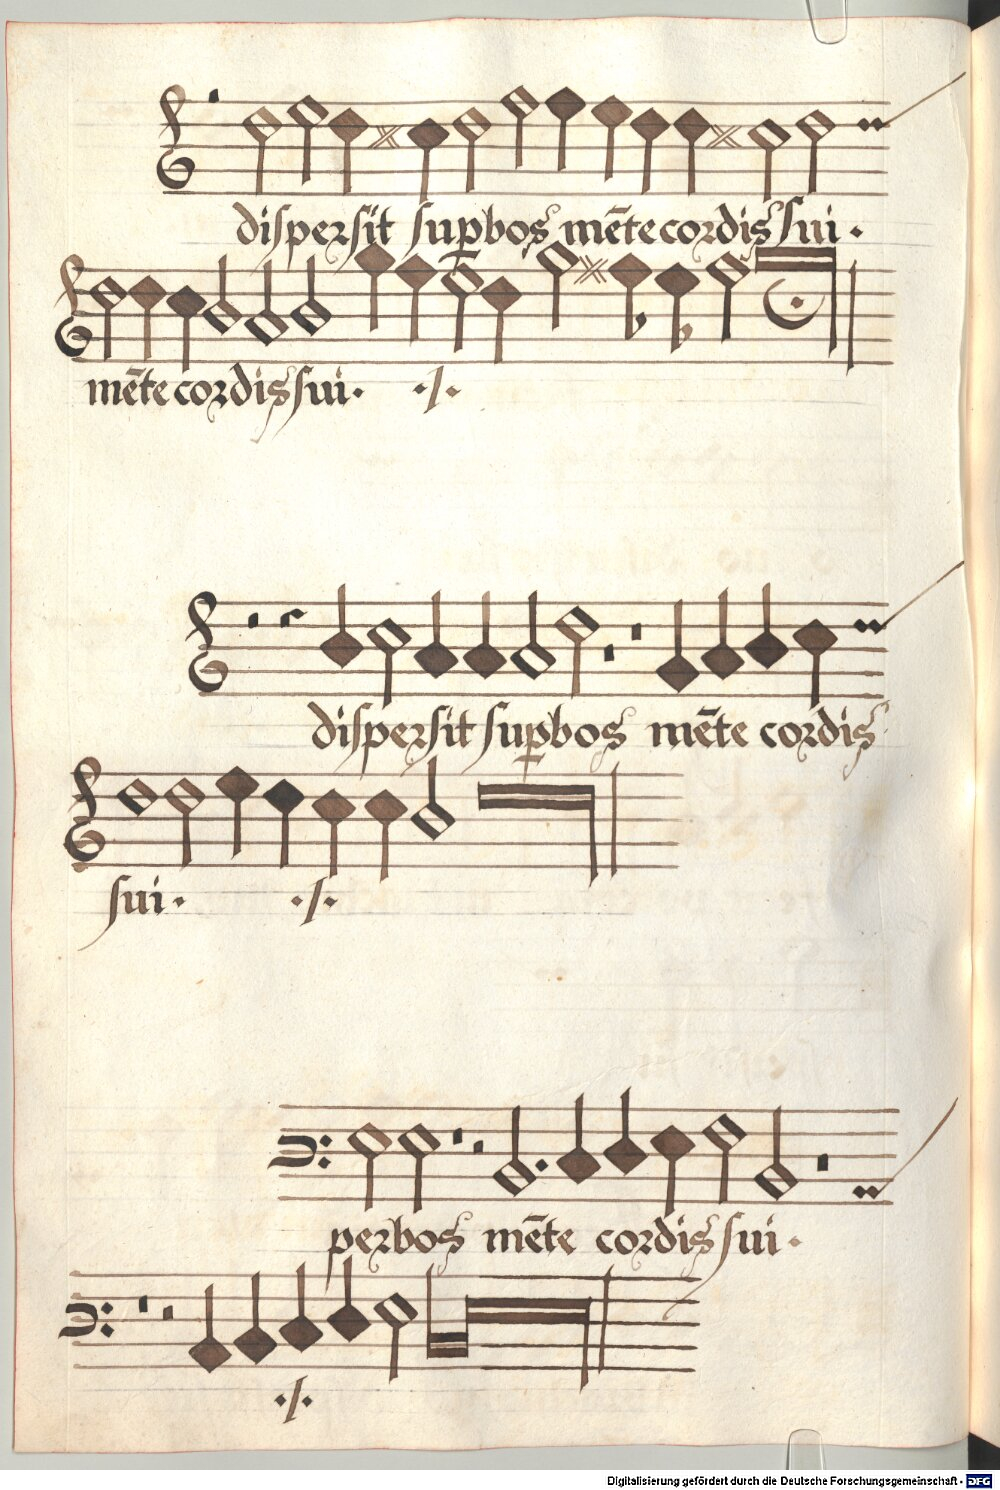 dispersit supbos mēte cordis sui ·
mēte cordis sui · ·/·
dispersit supbos mēte cordis
sui · ·/·
perbos mēte cordis sui ·
·/·
Digitalisierung gefördert durch die Deutsche Forschungsgemeinschaft - DFG